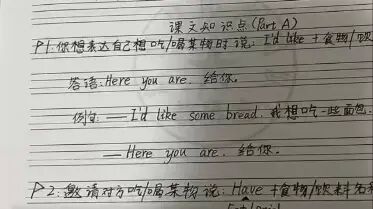 课文知识点(Part A)
P1:你想表达自己想吃/喝某物时说: I'd like +食物/饮
答语: Here you are. 给你。
例句: —I'd like some bread. 我想吃一些面包.
—Here you are. 给你。
P2: 邀请对方吃/喝某物说: Have +食物/饮料